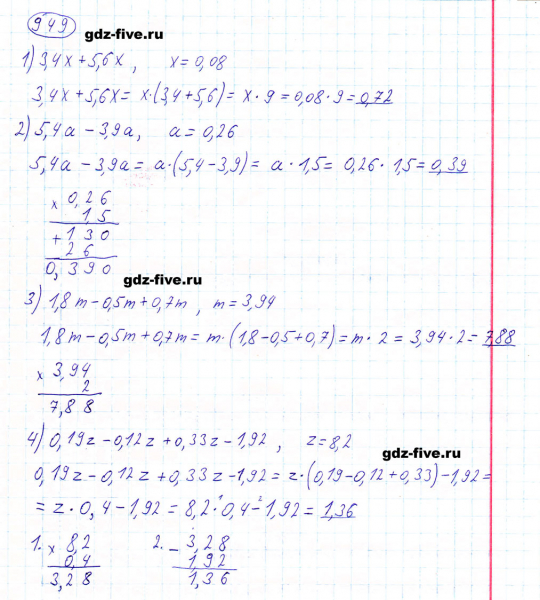 949
gdz-five.ru
1) 3,4x + 5,6x, x = 0,08
3,4x + 5,6x = x·(3,4 + 5,6) = x · 9 = 0,08 · 9 = 0,72
2) 5,4a - 3,9a, a = 0,26
5,4a - 3,9a = a·(5,4 - 3,9) = a · 1,5 = 0,26 · 1,5 = 0,39
x 0,26
1,5
+ 130
26
0,390
gdz-five.ru
3) 1,8m - 0,5m + 0,7m, m = 3,94
1,8m - 0,5m + 0,7m = m·(1,8 - 0,5 + 0,7) = m · 2 = 3,94 · 2 = 7,88
x 3,94
2
7,88
4) 0,19z - 0,12z + 0,33z - 1,92, z = 8,2
gdz-five.ru
0,19z - 0,12z + 0,33z - 1,92 = z·(0,19 - 0,12 + 0,33) - 1,92 =
= z · 0,4 - 1,92 = 8,2 ·¹ 0,4 -² 1,92 = 1,36
1. x 8,2
0,4
3,28
2. - 3,28
1,92
1,36